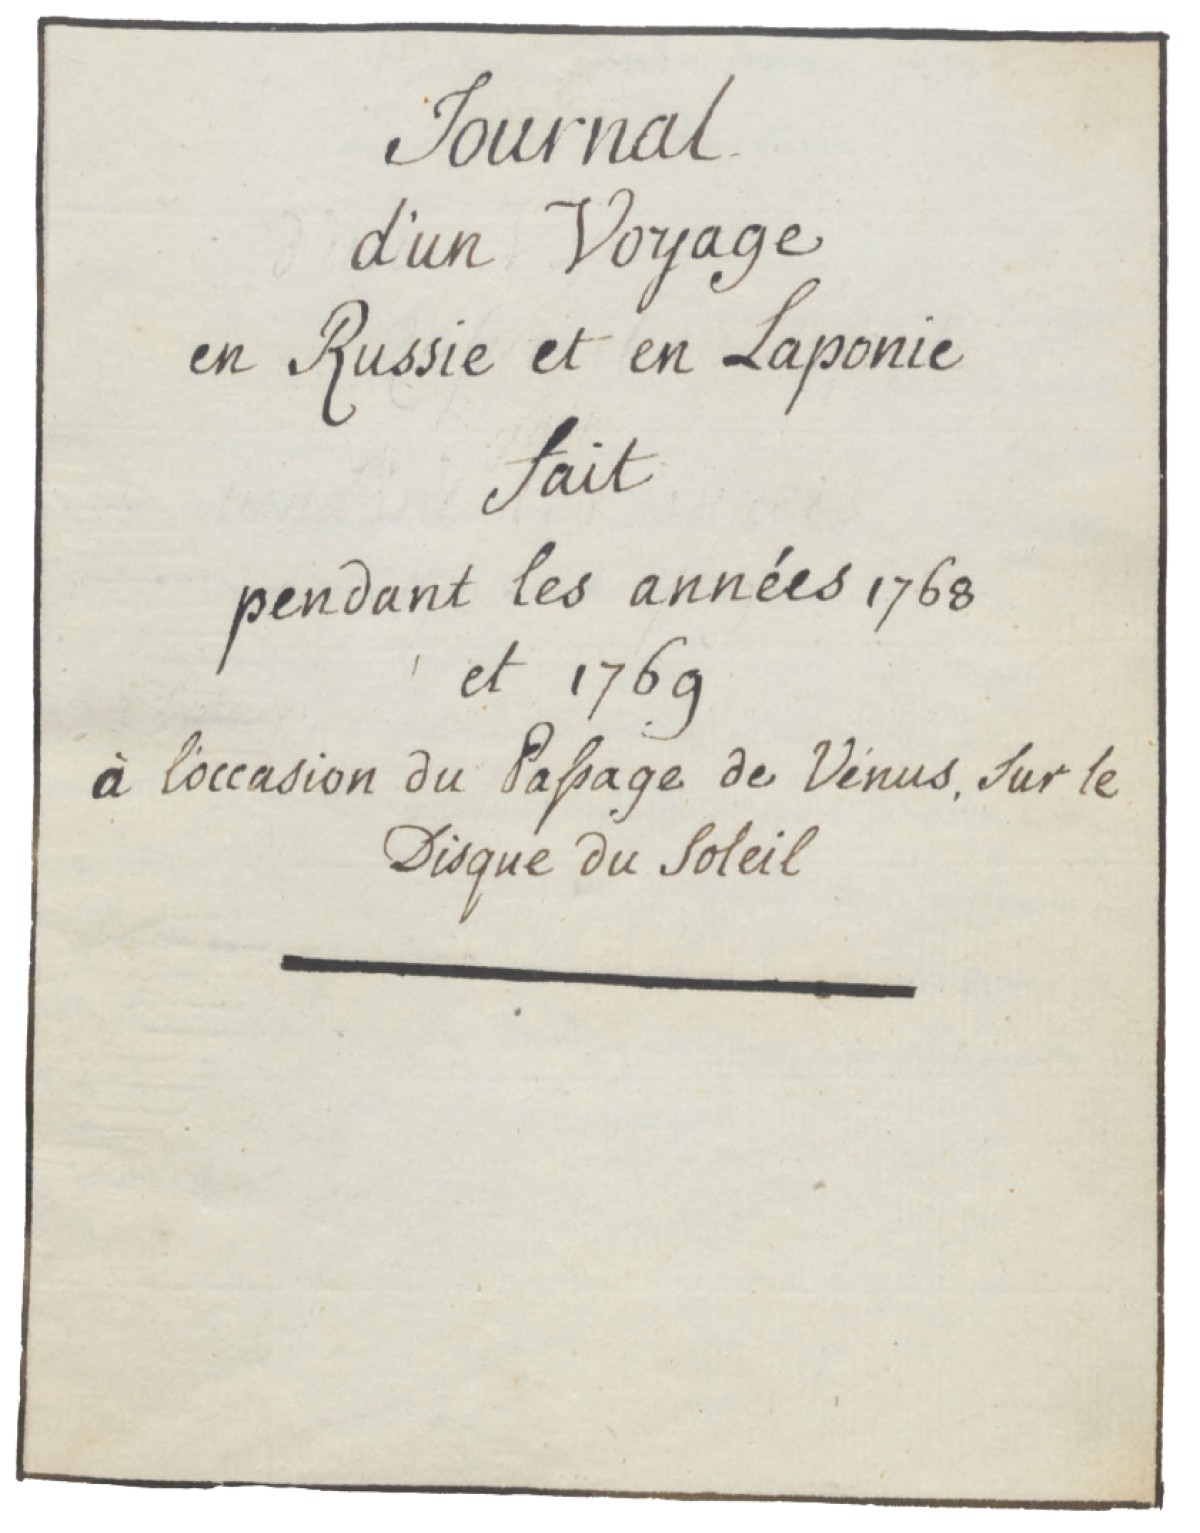 Journal
d'un Voyage
en Russie et en Laponie
fait
pendant les années 1768
et 1769
à l'occasion du Paſsage de Vénus, sur le
Disque du Soleil